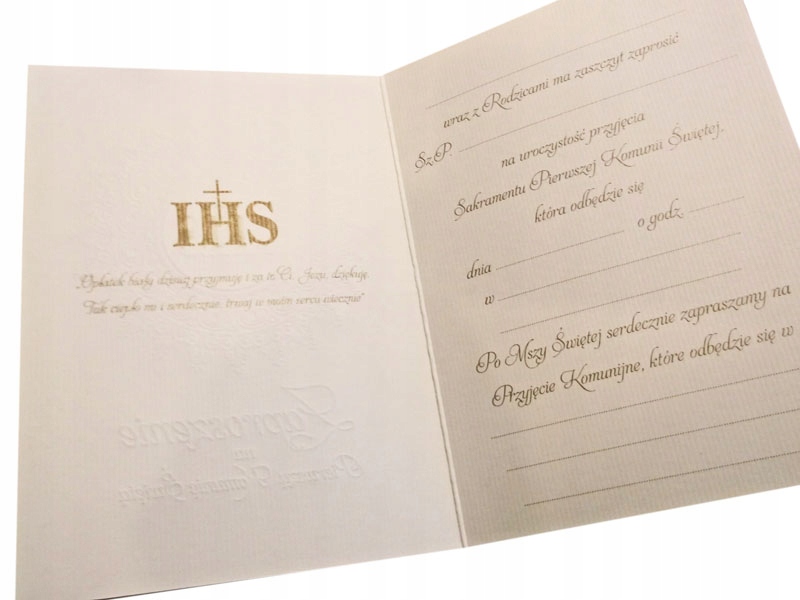 IHS
„Opłatek biały dzisiaj przyjmuję i za to Ci, Jezu, dziękuję.
Tak ciepło mi i serdecznie, trwaj w moim sercu wiecznie”
Zaproszenie
na
Pierwszą Komunię Świętą
wraz z Rodzicami ma zaszczyt zaprosić
Sz.P.
na uroczystość przyjęcia
Sakramentu Pierwszej Komunii Świętej,
która odbędzie się
dnia o godz.
w
Po Mszy Świętej serdecznie zapraszamy na
Przyjęcie Komunijne, które odbędzie się w